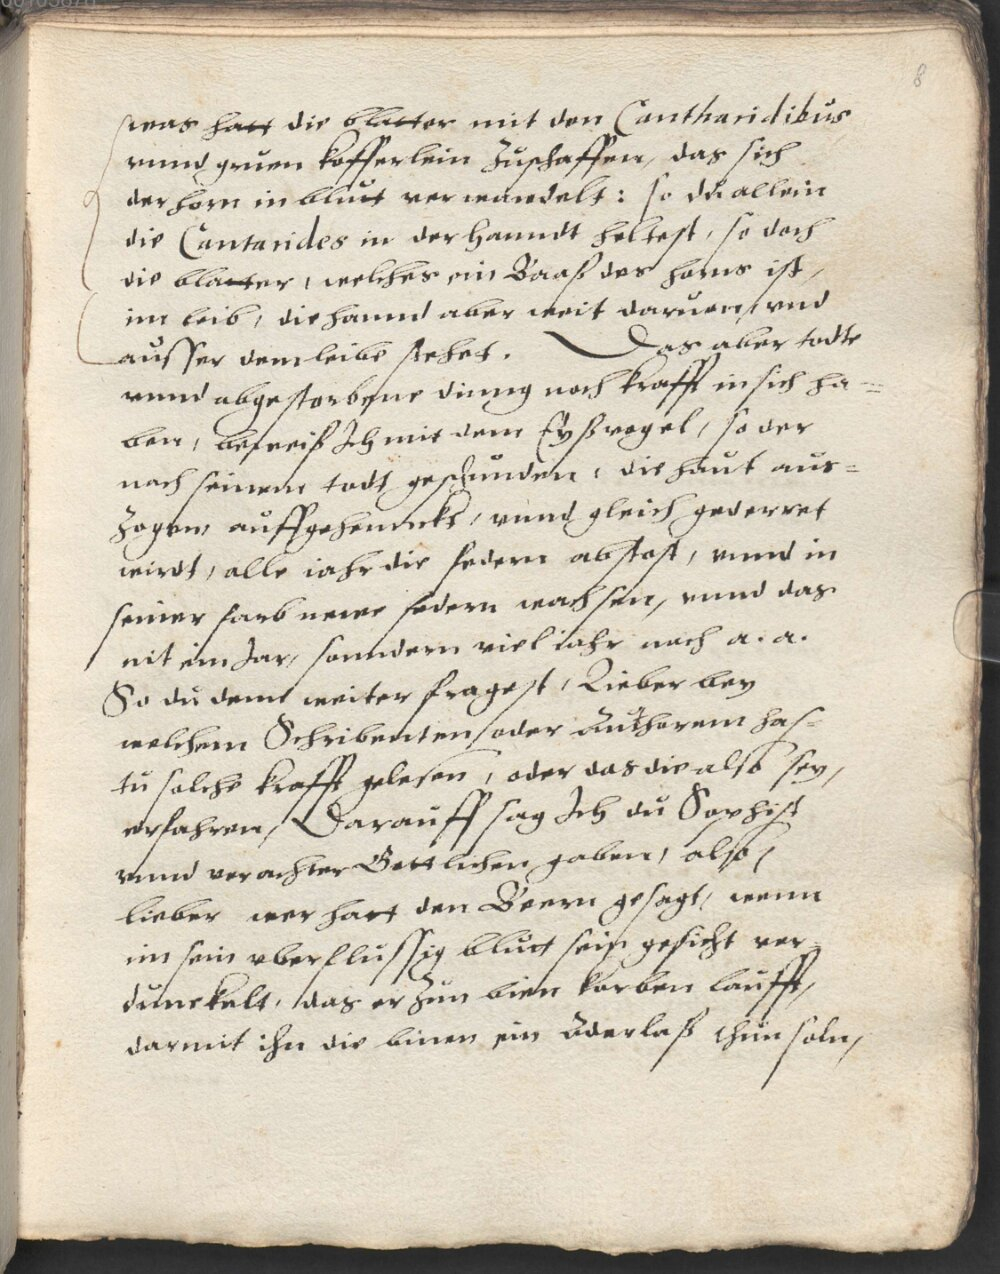 8
was hatt die blatter mit den Cantharidibus
vnnd gruen kefferlein zuschaffen, das sich
der horn in blutt verwandelt: so du allein
die Cantarides in der hanndt heltest, so doch
die blatter, welches ein Vaaß des horns ist,
im leib, die hannd aber weit daruon, vnd
ausser dem leibe stehet. Das aber todte
vnnd abgestorbene dinng noch krafft in sich ha=
ben, beweiß Ich mit dem Eyßvogel, so der
nach seinem todt geschunden, die haut aus=
zogen, auffgehennckt, vnnd gleich gederret
wirdt, alle iahr die federn abstost, vnnd in
seiner farb newe federn wachsen, vnnd das
nit ein Jar, sonndern viel iahr nach a. a.
So du denn weiter fragest, Lieber bey
welchem Schribenten oder Authorem has=
tu solche krafft gelesen, oder das die also sey,
erfahren, Darauff sag Ich du Sophist
vnnd verachter Gottlichen gaben, also,
lieber wer hatt den Beern gesagt, wenn
im sein vberflussig blutt sein gesicht ver=
dunckelt, das er zun bien korben laufft,
darmit ihn die binen ein Aderlaß thun soln,